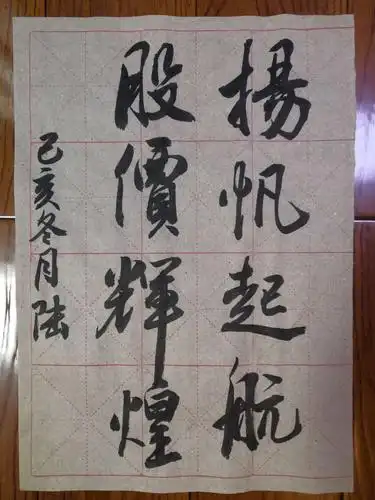 揚帆起航
股價輝煌
己亥冬月陆